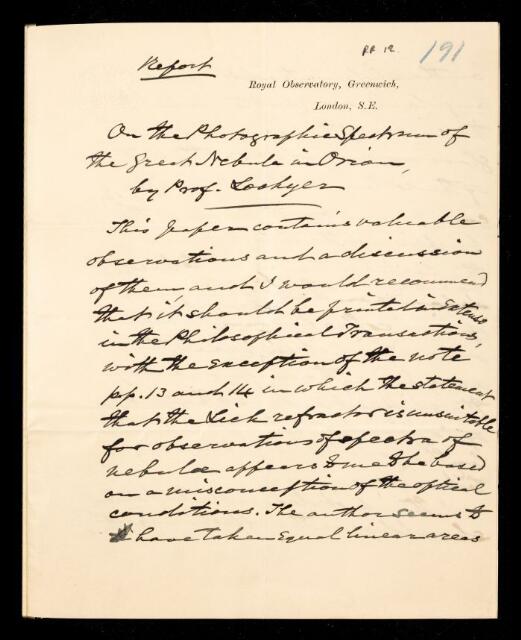 RR 12
191
Report
Royal Observatory, Greenwich,
London, S.E.
On the Photographic Spectrum of
the Great Nebula in Orion,
by Prof. Lockyer
This paper contains valuable
observations and a discussion
of them, and I would recommend
that it should be printed in extenso
in the Philosophical Transactions,
with the exception of the note
pp. 13 and 14 in which the statement
that the Lick refractor is unsuitable
for observations of spectra of
nebulæ appears to me to be based
on a misconception of the optical
conditions. The author seems to
have taken equal linear areas